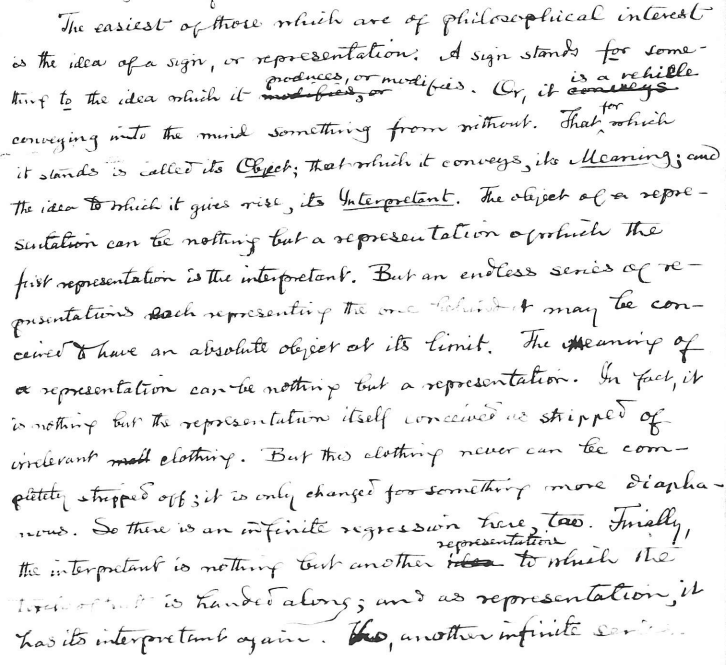 The easiest of those which are of philosophical interest
is the idea of a sign, or representation. A sign stands for some-
thing to the idea which it ~~modifies, or~~ produces, or modifies. Or, it ~~conveys~~ is a vehicle
conveying into the mind something from without. That for which
it stands is called its Object; that which it conveys, its Meaning; and
the idea to which it gives rise, its Interpretant. The object of a repre-
sentation can be nothing but a representation of which the
first representation is the interpretant. But an endless series of re-
presentations each representing the one behind it may be con-
ceived to have an absolute object at its limit. The meaning of
a representation can be nothing but a representation. In fact, it
is nothing but the representation itself conceived as stripped of
irrelevant clothing. But this clothing never can be com-
pletely stripped off; it is only changed for something more diapha-
nous. So there is an infinite regression here, too. Finally,
the interpretant is nothing but another ~~idea~~ representation to which the
is handed along; and as representation, it
has its interpretant again. Lo, another infinite series.